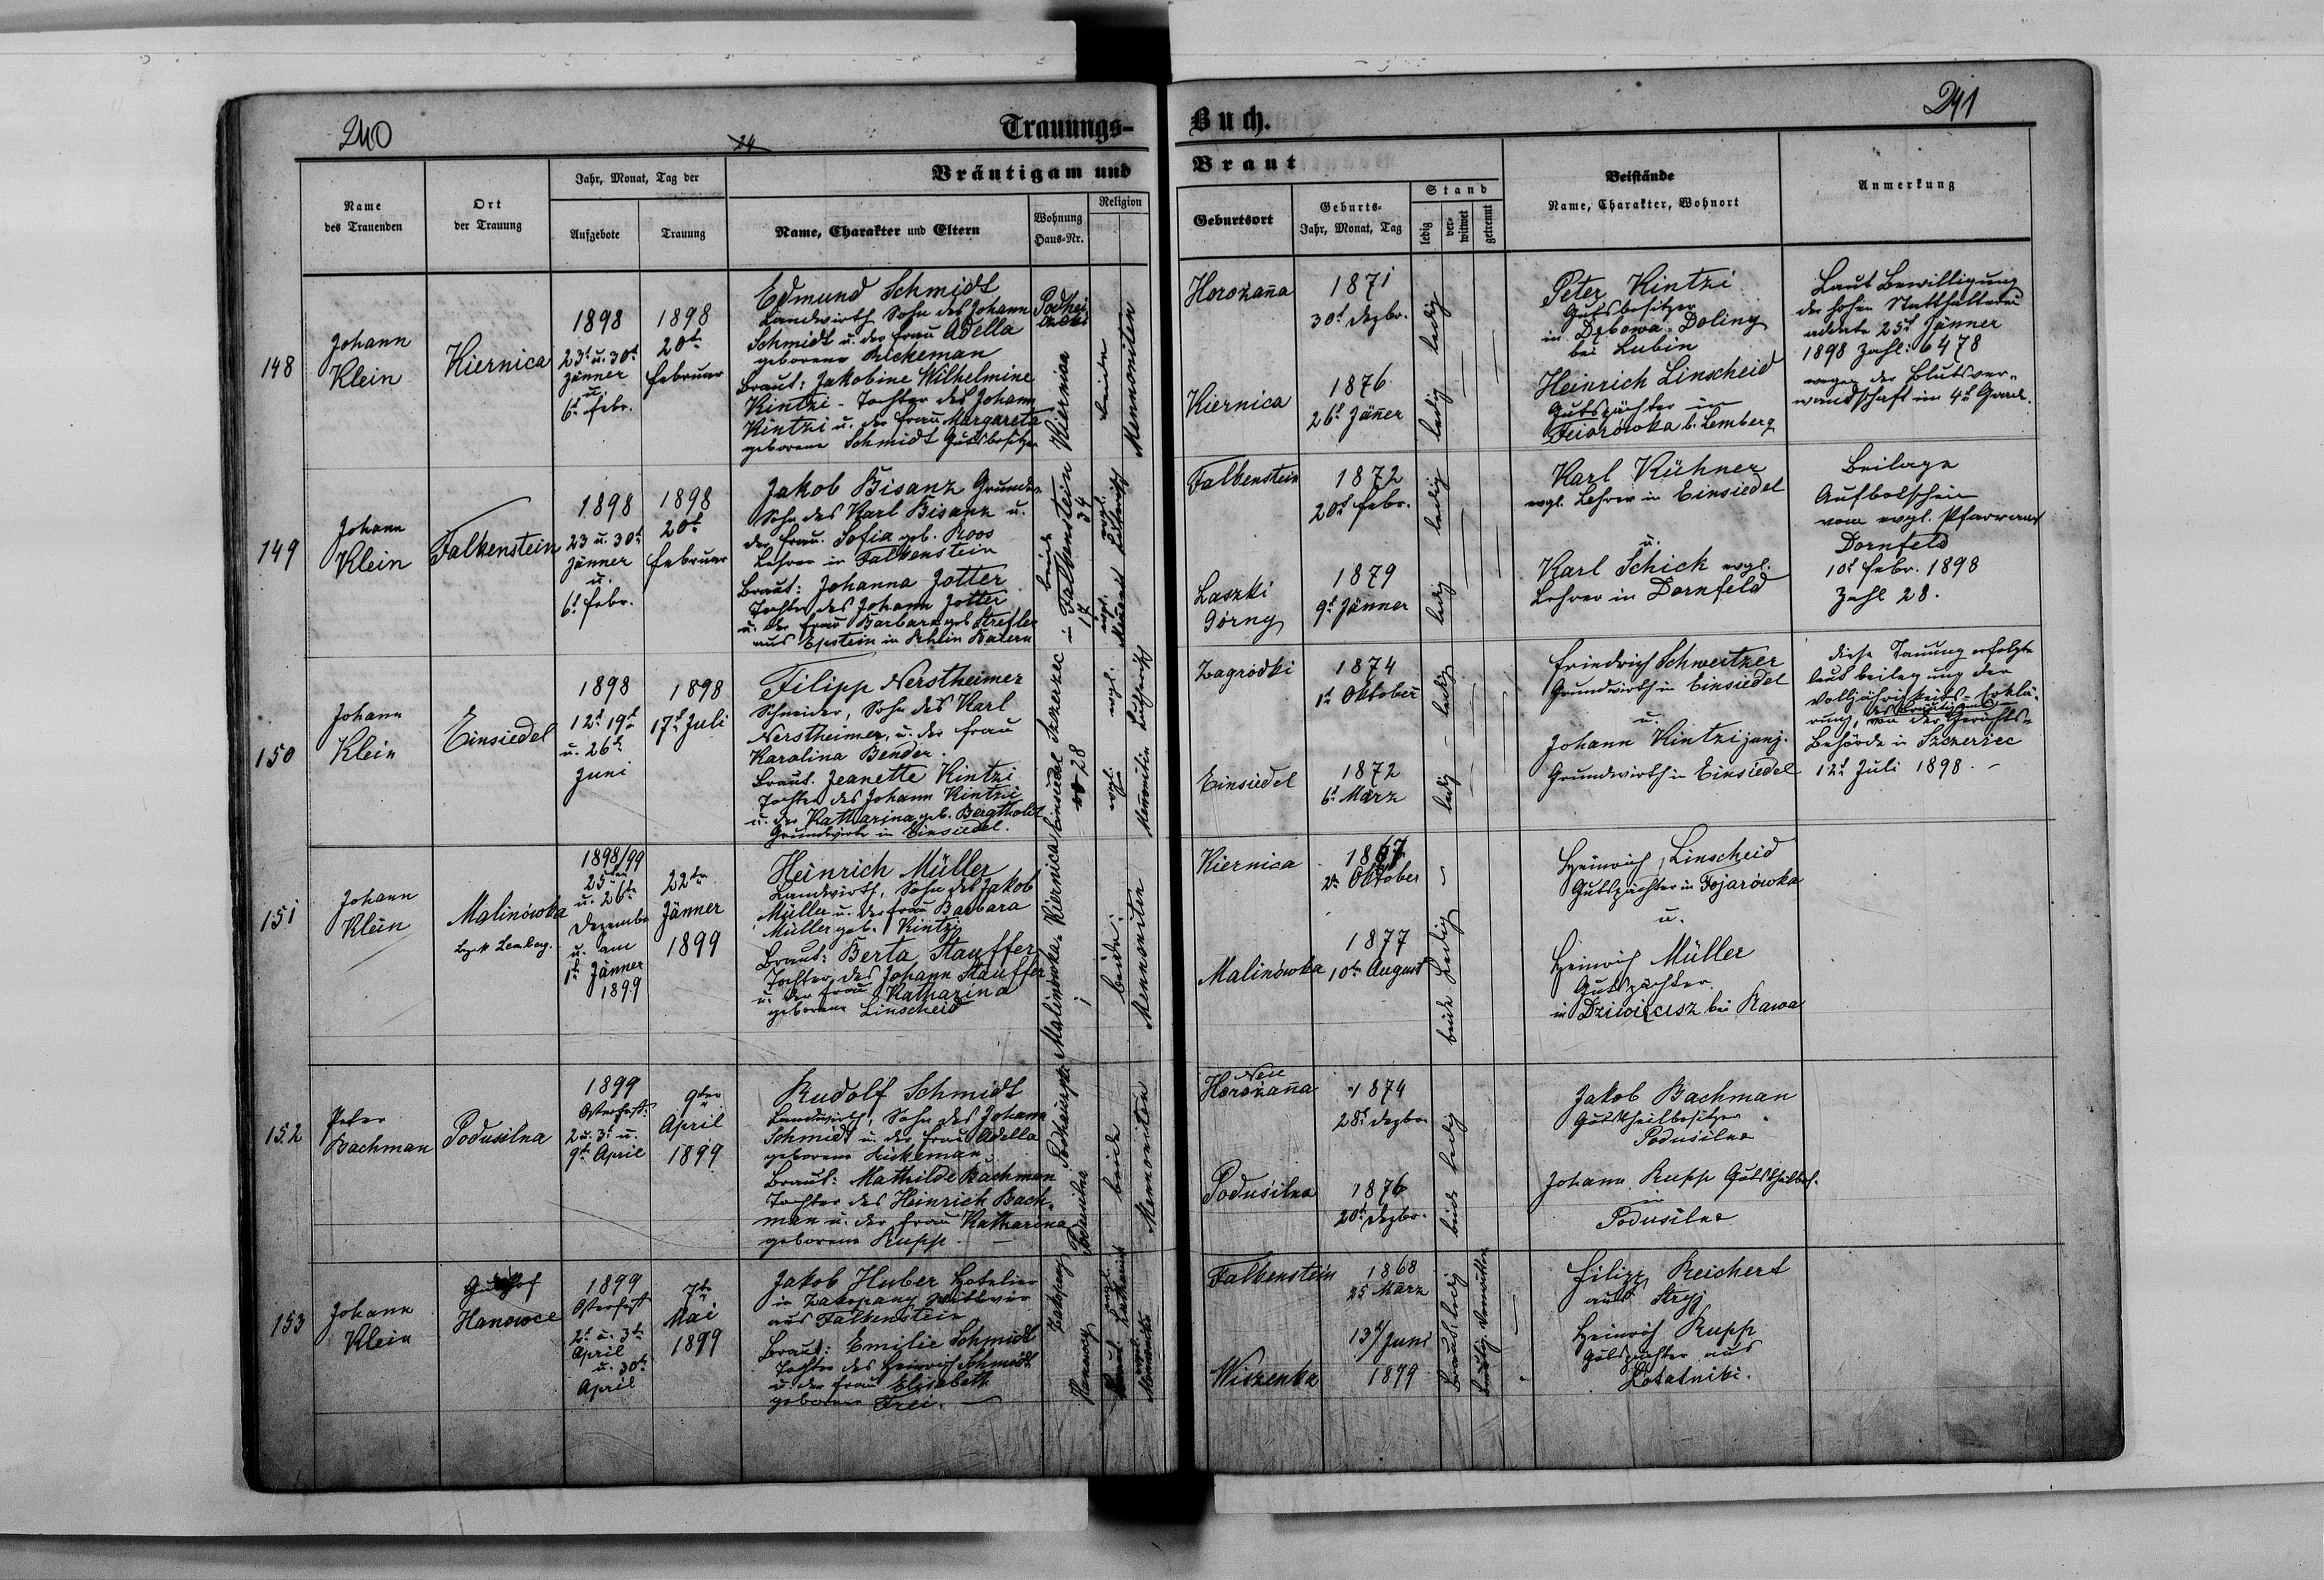 240
24
Trauungs-
Buch.
241
Name des Trauenden
Ort der Trauung
Jahr, Monat, Tag der
Aufgebote
Trauung
Bräutigam und
Braut
Name, Charakter und Eltern
Wohnung Haus-Nr.
Religion
Geburtsort
Geburts-
Jahr, Monat, Tag
Stand
ledig
ver-
witwet
getrennt
Beistände
Name, Charakter, Wohnort
Anmerkung
148
Johann
Klein
Kiernica
1898
23t u. 30t
Jänner
u.
6t Febr.
1898
20t
Februar
Edmund Schmidt
Landwirth, Sohn des Johann
Schmidt u. der Frau Adella
geborene Hickeman
Braut: Jakobine Wilhelmine
Kintzi - Tochter des Johann
Kintzi u. der Frau Margareta
geborene Schmidt Gutsbesitzer
Kiernica
beide
Mennoniten
Horożana
1871
30t Dezbr.
ledig
Kiernica
1876
26t Jäner
ledig
Peter Kintzi
Gutsbesitzer
in Dębowa-Doliny
bei Lubin
Heinrich Linscheid
Gutspächter in
b. Lemberg
Laut Bewilligung
der hohen Statthalterei
25t Jänner
1898 Zahl: 6478
wegen der Blutsver-
wandschaft im 4t Grad.
149
Johann
Klein
Falkenstein
1898
23 u. 30t
Jänner
u.
6t Febr.
1898
20t
Februar
Jakob Bisanz
Sohn des Karl Bisanz u.
der Frau Sofia geb. Roos
Lehrer in Falkenstein
Braut: Johanna Jotter
Tochter des Johann Jotter
u. der Frau Barbara geb. Strefler
aus Epstein in Rhein Baiern
beide
in Falkenstein
17
34
Falkenstein
1872
20t Febr.
ledig
Laszki
Górny
1879
9t Jänner
ledig
Karl Kühner
evgl. Lehrer in Einsiedel
u.
Karl Schick evgl.
Lehrer in Dornfeld
Beilage
Aufbotschein
vom evgl. Pfarramt
Dornfeld
10t Febr. 1898
Zahl 28.
150
Johann
Klein
Einsiedel
1898
12t 19t
u. 26t
Juni
1898
17t Juli
Filipp Nerstheimer
Schneider, Sohn des Karl
Nerstheimer, u. der Frau
Karolina Bender.
Braut: Jeanette Kintzi
Tochter des Johann Kintzi
u. der Katharina geb. Bergtholdt
Grundwirth in Einsiedel.
Einsiedel Szczerzec
28
Zagródki
1874
1t Oktober
ledig
Einsiedel
1872
6t März
ledig
Friedrich Schweitzer
Grundwirth in Einsiedel
u.
Johann Kintzi junj.
Grundwirth in Einsiedel
diese Trauung erfolgte
laut Beilegung der
Volljährigkeits-Erklä-
rung, des Bräutigams von der Gerichts-
Behörde in Szczerzec
12t Juli 1898.
151
Johann
Klein
Malinówka
Bezirk Lemberg.
1898/99
25ten
u. 26t
Dezember
u. am
1t Jänner
1899
22ten
Jänner
1899
Heinrich Müller
Landwirth, Sohn des Jakob
Müller u. der Frau Barbara
Müller geb. Kintzi
Braut: Berta Stauffer
Tochter des Johann Stauffer
u. der Frau Katharina
geborene Linscheid
Malinówka Kiernica
beide
Mennoniten
Kiernica
1867
2t Oktober
Malinówka
1877
10t August
beide ledig
Heinrich Linscheid
Gutspächter in Fojarówka
u.
Heinrich Müller
Gutspächter
bei Rawa
152
Peter
Bachman
Podusilna
1899
Osterfest:
2 u. 3t u.
9t April
9ten
April
1899
Rudolf Schmidt
Landwirth, Sohn des Johann
Schmidt u. der Frau Adella
geborene Hickeman.
Braut: Mathilde Bachman
Tochter des Heinrich Bach-
man u. der Frau Katharina
geborene Rupp.
Podusilna
beide
Mennoniten
Neu
Horożana
1874
28t Dezbr
Podusilna
1876
20t Dezbr.
beide ledig
Jakob Bachman
Gutstheilbesitzer
Podusilna
Johann Rupp Gutstheilbes.
in
Podusilna
153
Johann
Klein
Gutshof
Hanowce
1899
Osterfest
2t u. 3t
April
u. 30t
April
7t
Mai
1899
Jakob Huber Hotelier
in Zakopany Wittwer
aus Falkenstein
Braut: Emilie Schmidt
Tochter des Heinrich Schmidt
u. der Frau Elisabeth
geborene Frei.
Zakopany
Falkenstein
1868
25 März
Wiszenka
13t/Juni
1879
Braut ledig
Filipp Reichert
aus Stryj
Heinrich Rupp
Gutspächter aus